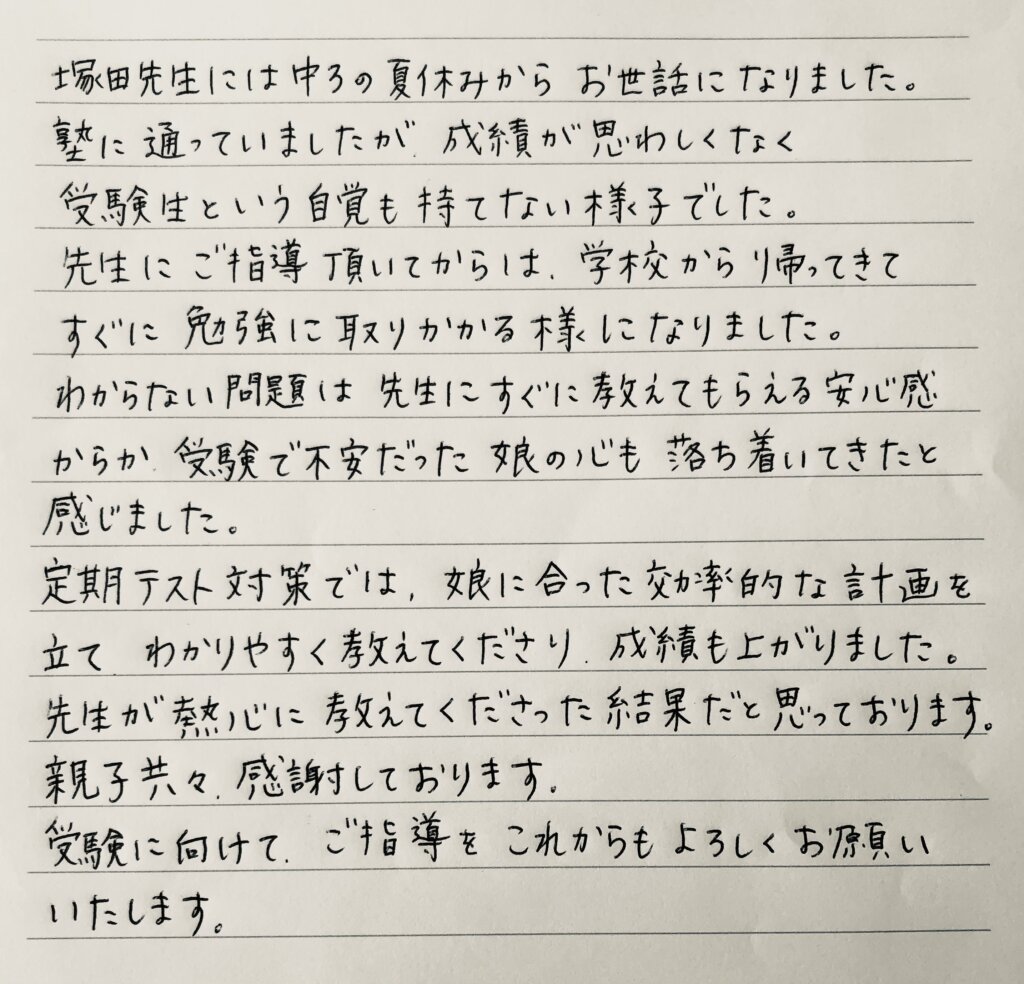 塚田先生には中3の夏休みから お世話になりました。
塾に通っていましたが、成績が思わしくなく
受験生という自覚も持てない様子でした。
先生にご指導頂いてからは、学校から帰ってきて
すぐに勉強に取りかかる様になりました。
わからない問題は 先生にすぐに教えてもらえる安心感
からか、受験で不安だった 娘の心も 落ち着いてきたと
感じました。
定期テスト対策では、娘に合った効率的な計画を
立て わかりやすく教えてくださり、成績も上がりました。
先生が熱心に教えてくださった結果だと思っております。
親子共々、感謝しております。
受験に向けて、ご指導を これからもよろしくお願い
いたします。